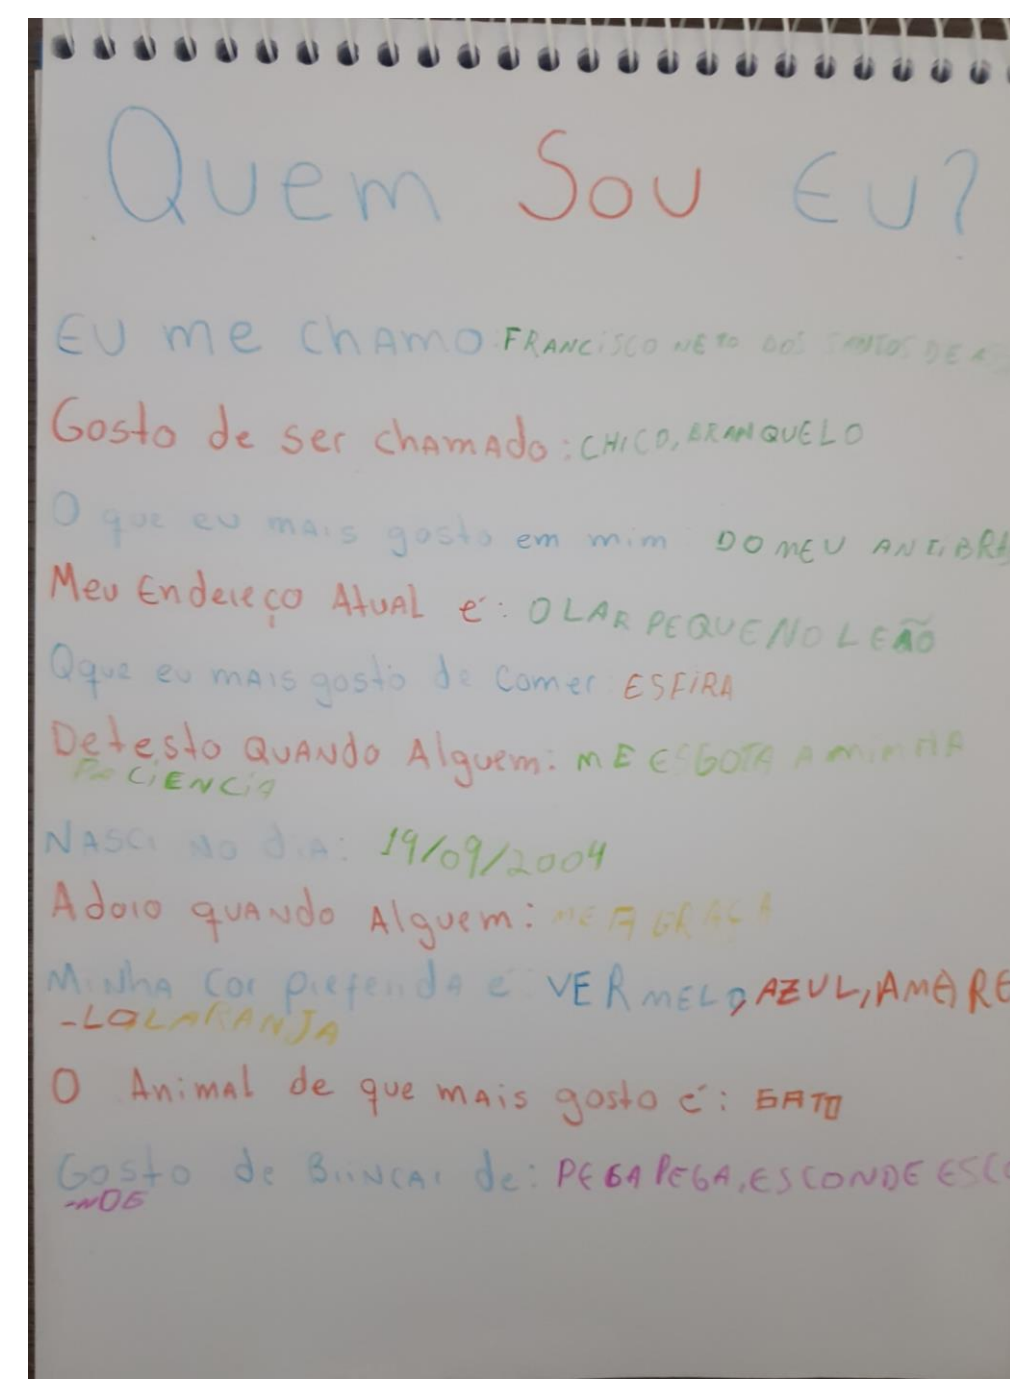 Quem Sou EU?
EU me chAMO: FRANCISCO NETO DOS SANTOS DE
Gosto de ser chAMAdo: CHICO, BRANQUELO
O que eu mais gosto em mim DO MEU
Meu Endereço AtuAL é: O LAR PEQUENO LEÃO
Oque eu mAis gosto de comer ESFIRA
Detesto QUANDO Alguem: ME ESGOTA A MINHA
PACIENCIA
NASCI NO DIA: 19/09/2004
Adoro quANdo Alguem: ME A GRAÇA
MiNhA cor preferida é VERMELO, AZUL, AMARE
-LO LARANJA
O AnimAL de que mAis gosto é: GATO
Gosto de BrINCAr de: PEGA PEGA, ESCONDE ESCO
-NDE